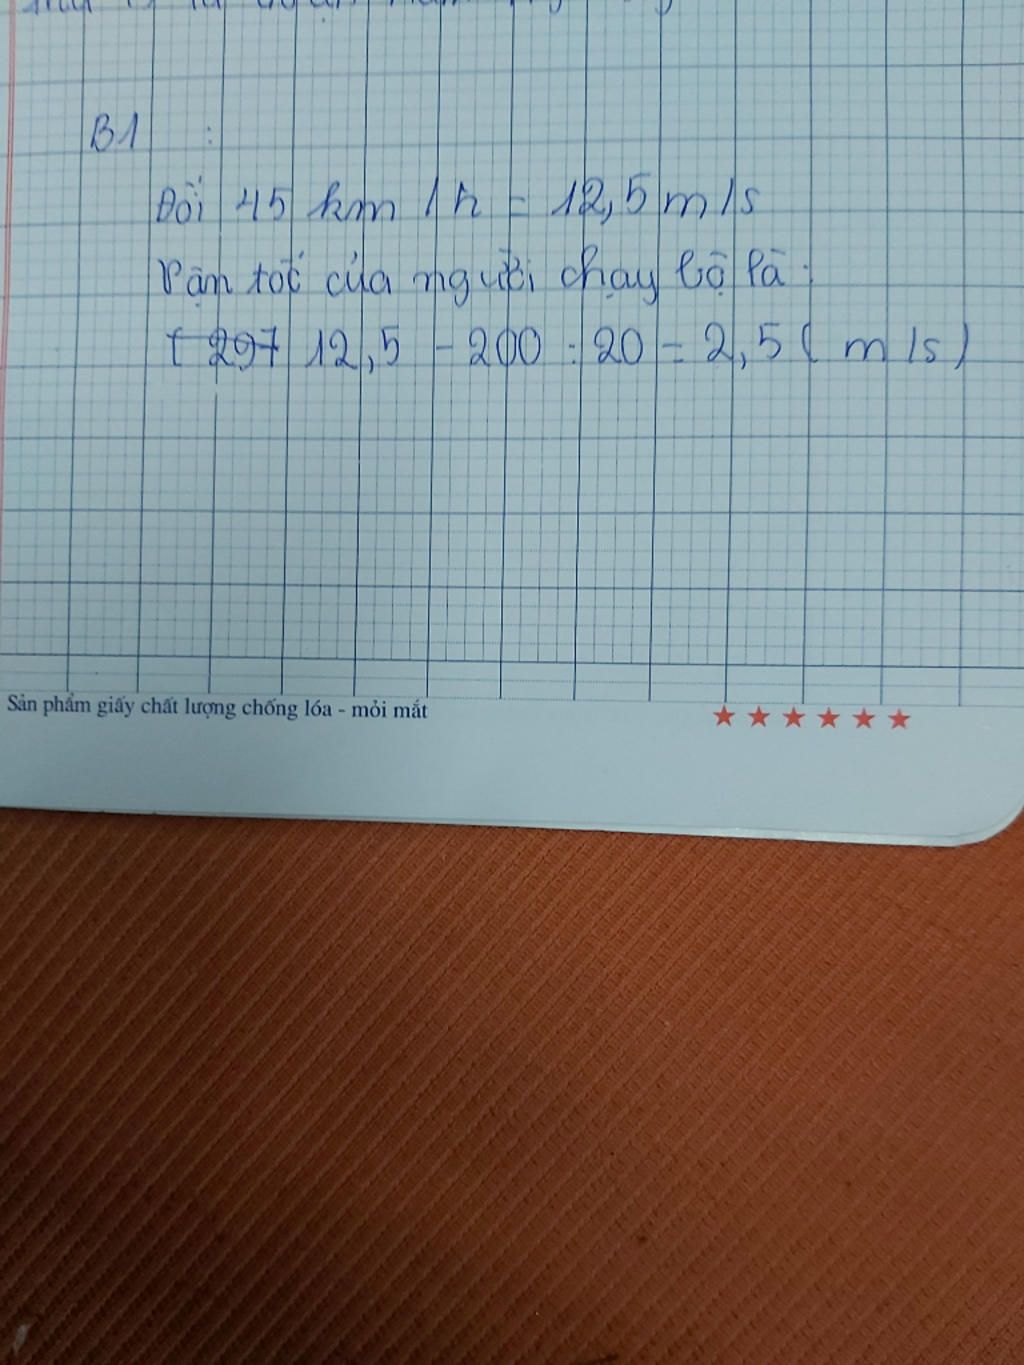 B1 :
Đổi 45 km/h = 12,5 m/s
Vận tốc của người chạy bộ là :
12,5 - 200 : 20 = 2,5 ( m/s)
Sản phẩm giấy chất lượng chống lóa - mỏi mắt